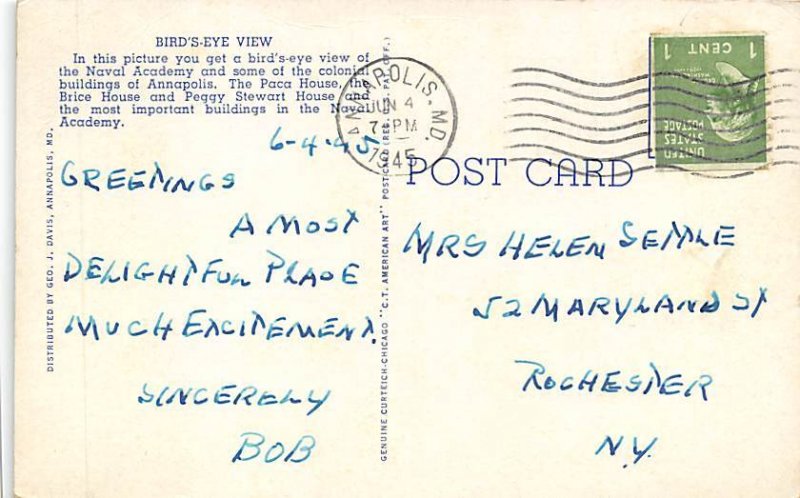 BIRD'S-EYE VIEW
In this picture you get a bird's-eye view of
the Naval Academy and some of the colonial
buildings of Annapolis. The Paca House, the
Brice House and Peggy Stewart House and
the most important buildings in the Naval
Academy.
6-4-45
GREETINGS
A MOST
DELIGHTFUL PLACE
MUCH EXCITEMENT.
SINCERELY
BOB
DISTRIBUTED BY GEO. J. DAVIS, ANNAPOLIS, MD.
GENUINE CURTEICH-CHICAGO "C.T. AMERICAN ART" POST CARD (REG. U.S. PAT. OFF.)
ANNAPOLIS, MD.
JUN 4
7 PM
1945
1 CENT 1
UNITED
STATES
POSTAGE
POST CARD
MRS HELEN SEMPLE
52 MARYLAND ST
ROCHESTER
N.Y.